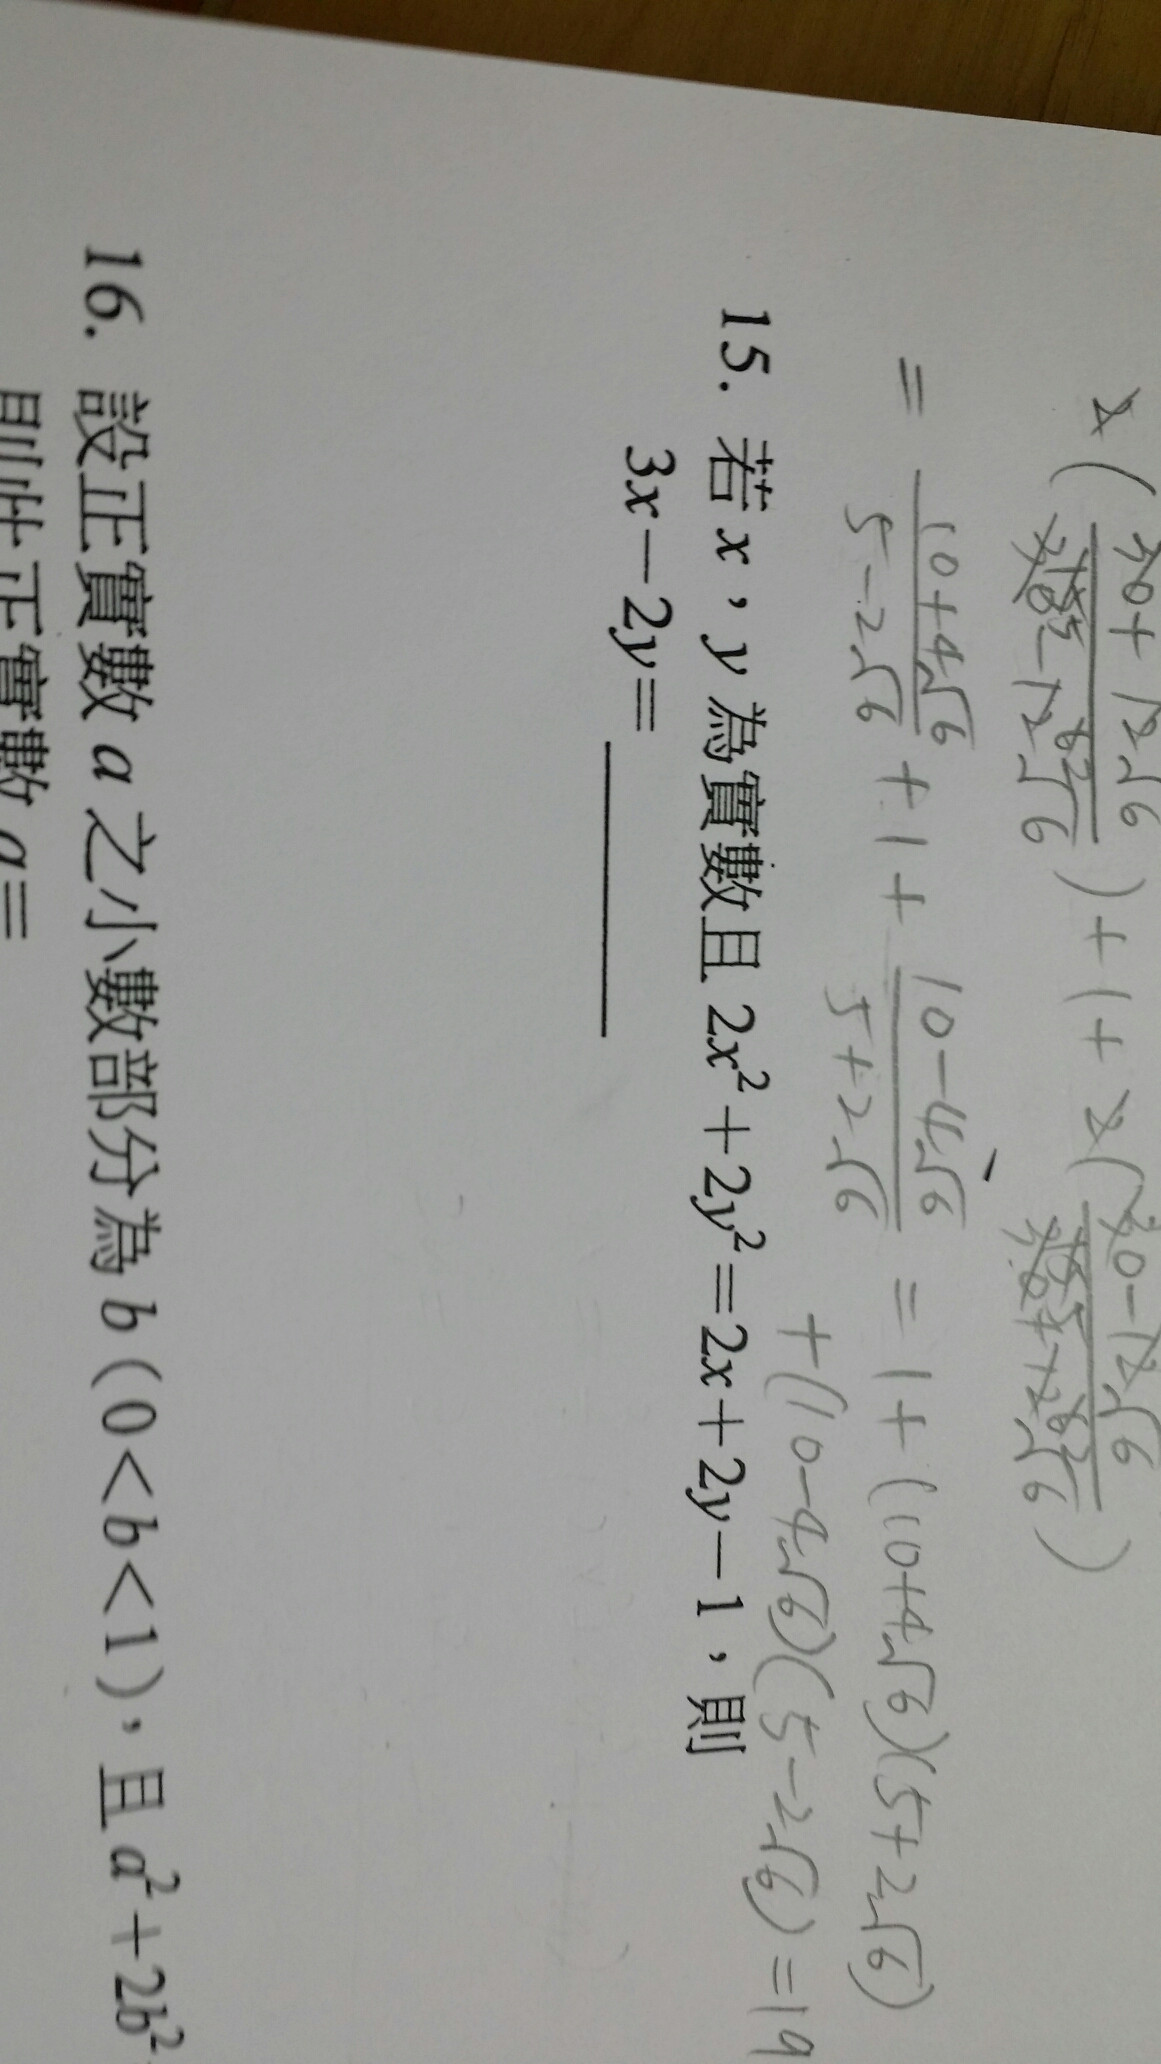 x(30+12√6 / 15-12√6)+1+x(30-12√6 / 15+12√6)
= 10+4√6 / 5-2√6 +1+ 10-4√6 / 5+2√6 = 1+(10+4√6)(5+2√6)
+(10-4√6)(5-2√6)=19
15. 若x,y為實數且2x²+2y²=2x+2y-1,則
3x-2y=
16. 設正實數a之小數部分為b(0<b<1),且a²+2b²
則此正實數a=